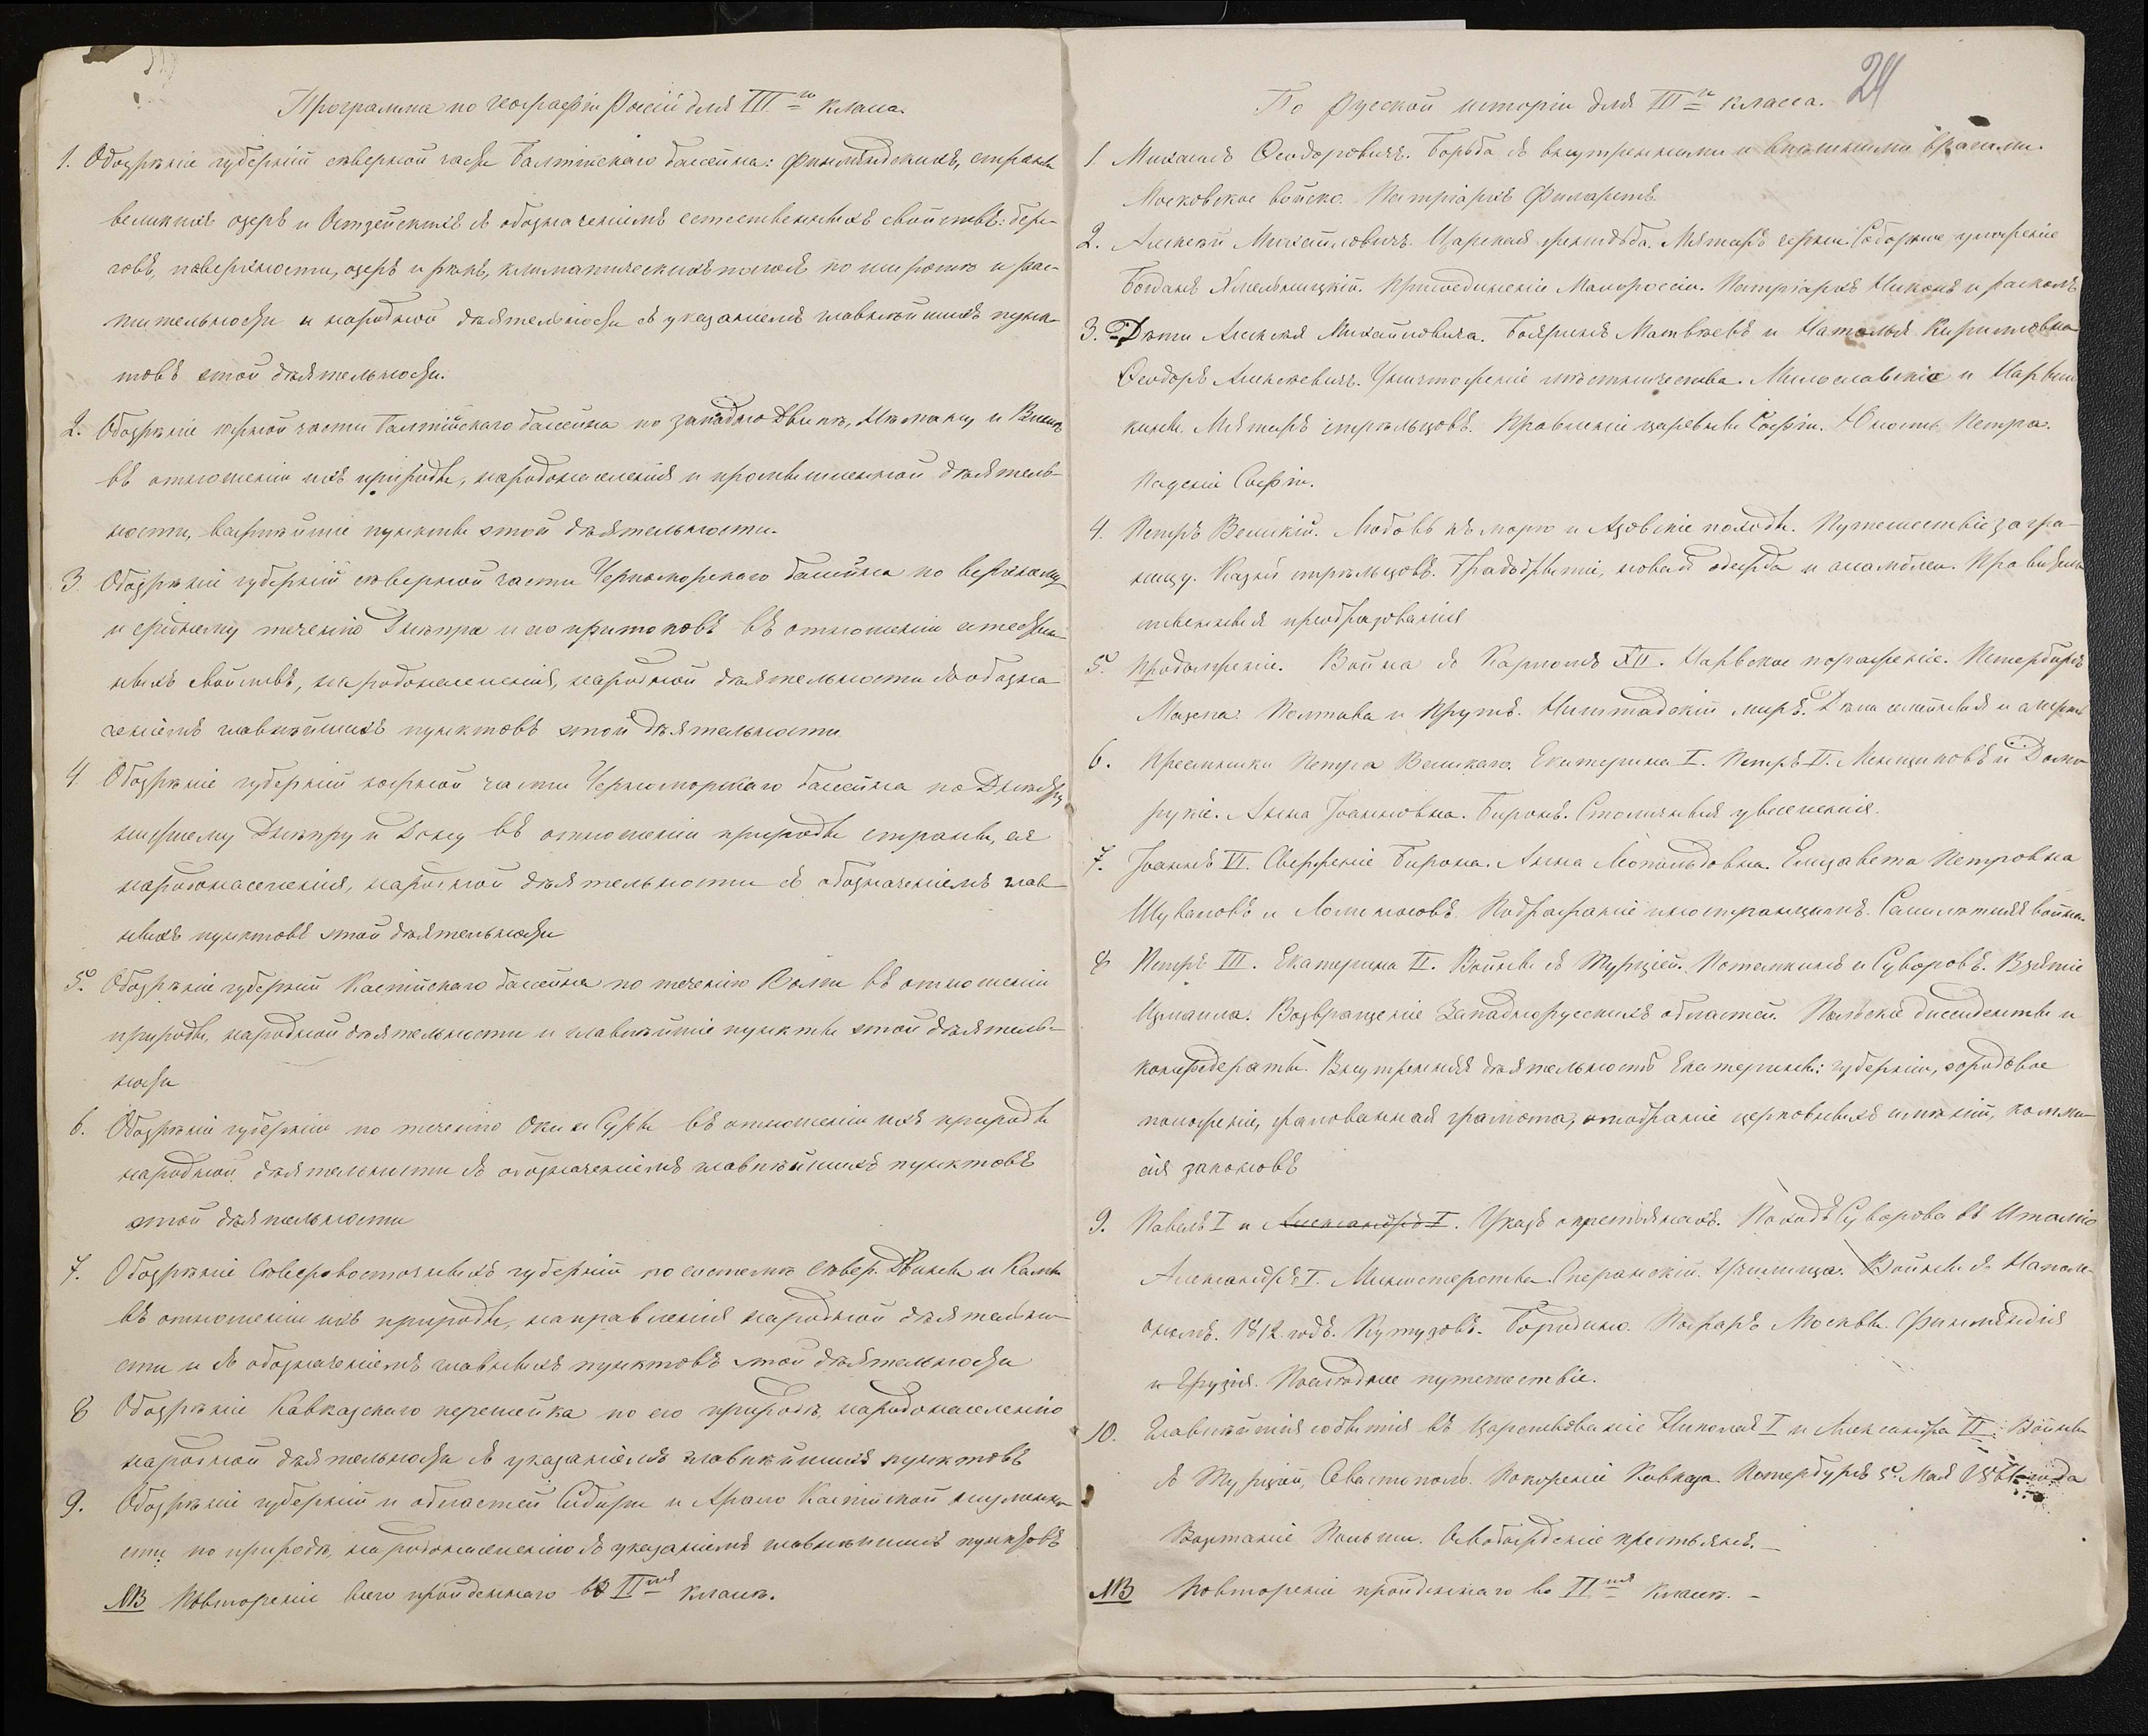 Программа по географіи Россіи для III го класса.
1. Обозрѣніе губерній сѣверной части Балтійскаго бассейна: финляндскихъ, страны
великихъ озеръ и Остзейскихъ съ обозначеніемъ естественныхъ свойствъ: бере-
говъ, поверхности, озеръ и рѣкъ, климатическихъ по широтѣ и рас-
тительности и народной дѣятельности съ указаніемъ главнѣйшихъ пунк-
товъ этой дѣятельности.
2. Обозрѣніе южной части Балтійскаго бассейна по западной Двинѣ, Нѣману и Вислѣ
въ отношеніи ихъ природы, народонаселенія и промышленной дѣятель-
ности, важнѣйшіе пункты этой дѣятельности.
3. Обозрѣніе губерній сѣверной части Черноморскаго бассейна по верхнему
и среднему теченію Днѣпра и его притоковъ въ отношеніи естествен-
ныхъ свойствъ, народонаселенія, народной дѣятельности съ обозна-
ченіемъ главнѣйшихъ пунктовъ этой дѣятельности
4 Обозрѣніе губерній южной части Черноморскаго бассейна по Днѣстру
нижнему Днѣпру и Дону въ отношеніи природы страны, ея
народонаселенія, народной дѣятельности съ обозначеніемъ глав-
ныхъ пунктовъ этой дѣятельности
5. Обозрѣніе губерній Каспійскаго бассейна по теченію Волги въ отношеніи
природы, народной дѣятельности и главнѣйшіе пункты этой дѣятель-
ности
6. Обозрѣніе губерній по теченію Оки и Суры въ отношеніи ихъ природы
народной дѣятельности съ обозначеніемъ главнѣйшихъ пунктовъ
этой дѣятельности
7. Обозрѣніе Сѣверовосточныхъ губерній по системѣ Сѣвер. Двины и Камы
въ отношеніи ихъ природы, направленія народной дѣятельно-
сти и съ обозначеніемъ главныхъ пунктовъ этой дѣятельности
8 Обозрѣніе Кавказскаго перешейка по его природѣ, народонаселенію
народной дѣятельности съ указаніемъ главнѣйшихъ пунктовъ
9. Обозрѣніе губерній и областей Сибири и Арало Каспійской низменно-
сти по природѣ, народонаселенію съ указаніемъ главнѣйшихъ пунктовъ
NB Повтореніе всего пройденнаго во II мъ классѣ.
24
По русской исторіи для III го класса.
1. Михаилъ Ѳеодоровичъ. Борьба съ внутренними и внѣшними врагами.
Московское войско. Патріархъ Филаретъ.
2. Алексѣй Михайловичъ. Царская женидьба. Мятежъ черни. Соборное уложеніе
Богданъ Хмельницкій. Присоединеніе Малороссіи. Патріархъ Никонъ и расколъ
3. Дѣти Алексѣя Михайловича. Бояринъ Матвѣевъ и Наталья Кирилловна
Ѳеодоръ Алексѣевичъ. Уничтоженіе мѣстничества. Милославскіе и Нарыш-
кины. Мятежъ стрѣльцовъ. Правленіе царевны Софіи. Юность Петра.
Паденіе Софіи.
4. Петръ Великій. Любовь къ морю и Азовскіе походы. Путешествіе загра-
ницу. Казнь стрѣльцовъ. Брадобритіе, новая одежда и ассамблеи. Правитель-
ственныя преобразованія
5. Продолженіе. Война съ Карломъ XII. Нарвское пораженіе. Петербургъ
Мазепа. Полтава и Прутъ. Ништадскій миръ. Дѣла семейныя и смерть
6. Преемники Петра Великаго. Екатерина I. Петръ II. Меншиковъ и Долго-
рукіе. Анна Іоанновна. Биронъ. Столичныя увеселенія.
7. Іоаннъ VI. Сверженіе Бирона. Анна Леопольдовна. Елизавета Петровна
Шуваловъ и Ломоносовъ. Подражаніе иностранцамъ. Семилѣтняя война.
8 Петръ III. Екатерина II. Войны съ Турціей. Потемкинъ и Суворовъ. Взятіе
Измаила. Возвращеніе Западнорусскихъ областей. Польскіе диссиденты и
конфедераты. Внутренняя дѣятельность Екатерины: губерніи, городовое
положеніе, жалованная грамота, отобраніе церковныхъ имѣній, комми-
сія законовъ
9. Павелъ I и Александръ I. Указъ о крестьянахъ. Походъ Суворова въ Италію
Александръ I. Министерства. Сперанскій. Училища. Войны съ Наполе-
ономъ. 1812 годъ. Кутузовъ. Бородино. Пожаръ Москвы. Финляндія
и Грузія. Послѣднее путешествіе.
10. Главнѣйшія событія въ царствованіе Николая I и Александра II: Войны
съ Турціей, Севастополь. Покореніе Кавказа. Петербургъ 5. Мая года
Возстаніе Польши. Освобожденіе крестьянъ. —
NB Повтореніе пройденнаго во II мъ классѣ. —